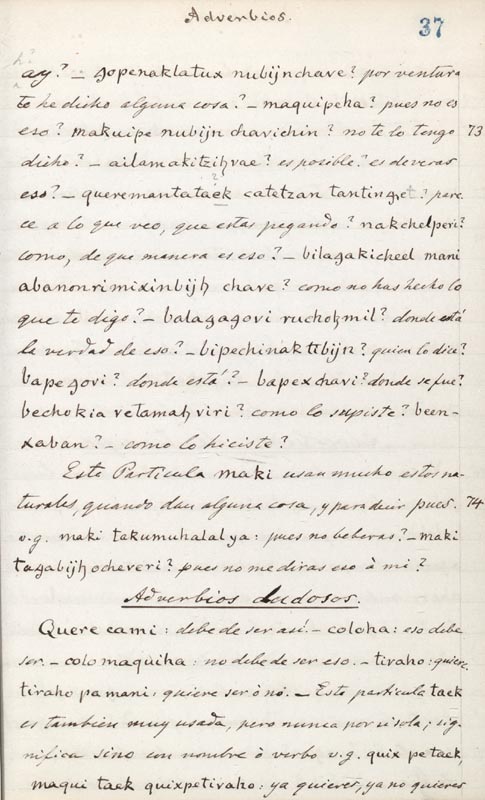 Adverbios.
37
h?
ay? – gopenaklatux nubijnchave? por ventura
te he dicho alguna cosa? – maquipeha? pues no es
eso? makuipe nubijn chavichin? no te lo tengo 73
dicho? – ailamakitzihvae? es posible? es deveras
eso? – queremantataek catetzan tantin ? pare-
ce a lo que veo, que estas pegando? nakchelperi?
como, de que manera es eso? – bilagakicheel mani
abanonrimixinbijh chave? como no has hecho lo
que te digo? – balagagovi ruchokmil? donde està
la verdad de eso? – bipechinaktibijn? quien lo dice?
bapegovi? donde està? – bapexchavi? donde se fue?
bechokia retamahviri? como lo supiste? been-
xaban? – como lo hiciste?
Esta Particula maki usan mucho estos na-
turales, quando dan alguna cosa, y para decir pues. 74
v.g. maki takumuhalalya: pues no beberas? – maki
tagabijhocheveri? pues no me diras eso à mi?
Adverbios dudosos.
Quere cami: debe de ser asi. – coloha: eso debe
ser. – colo maquiha: no debe de ser eso. – tiraho: quiere
tiraho pa mani: quiere ser ò nò. – Esta particula taek
es tambien muy usada, pero nunca por si sola; sig-
nifica sino con nombre ò verbo v.g. quix pe taek,
maqui taek quixpetiraho: ya quieres, ya no quieres